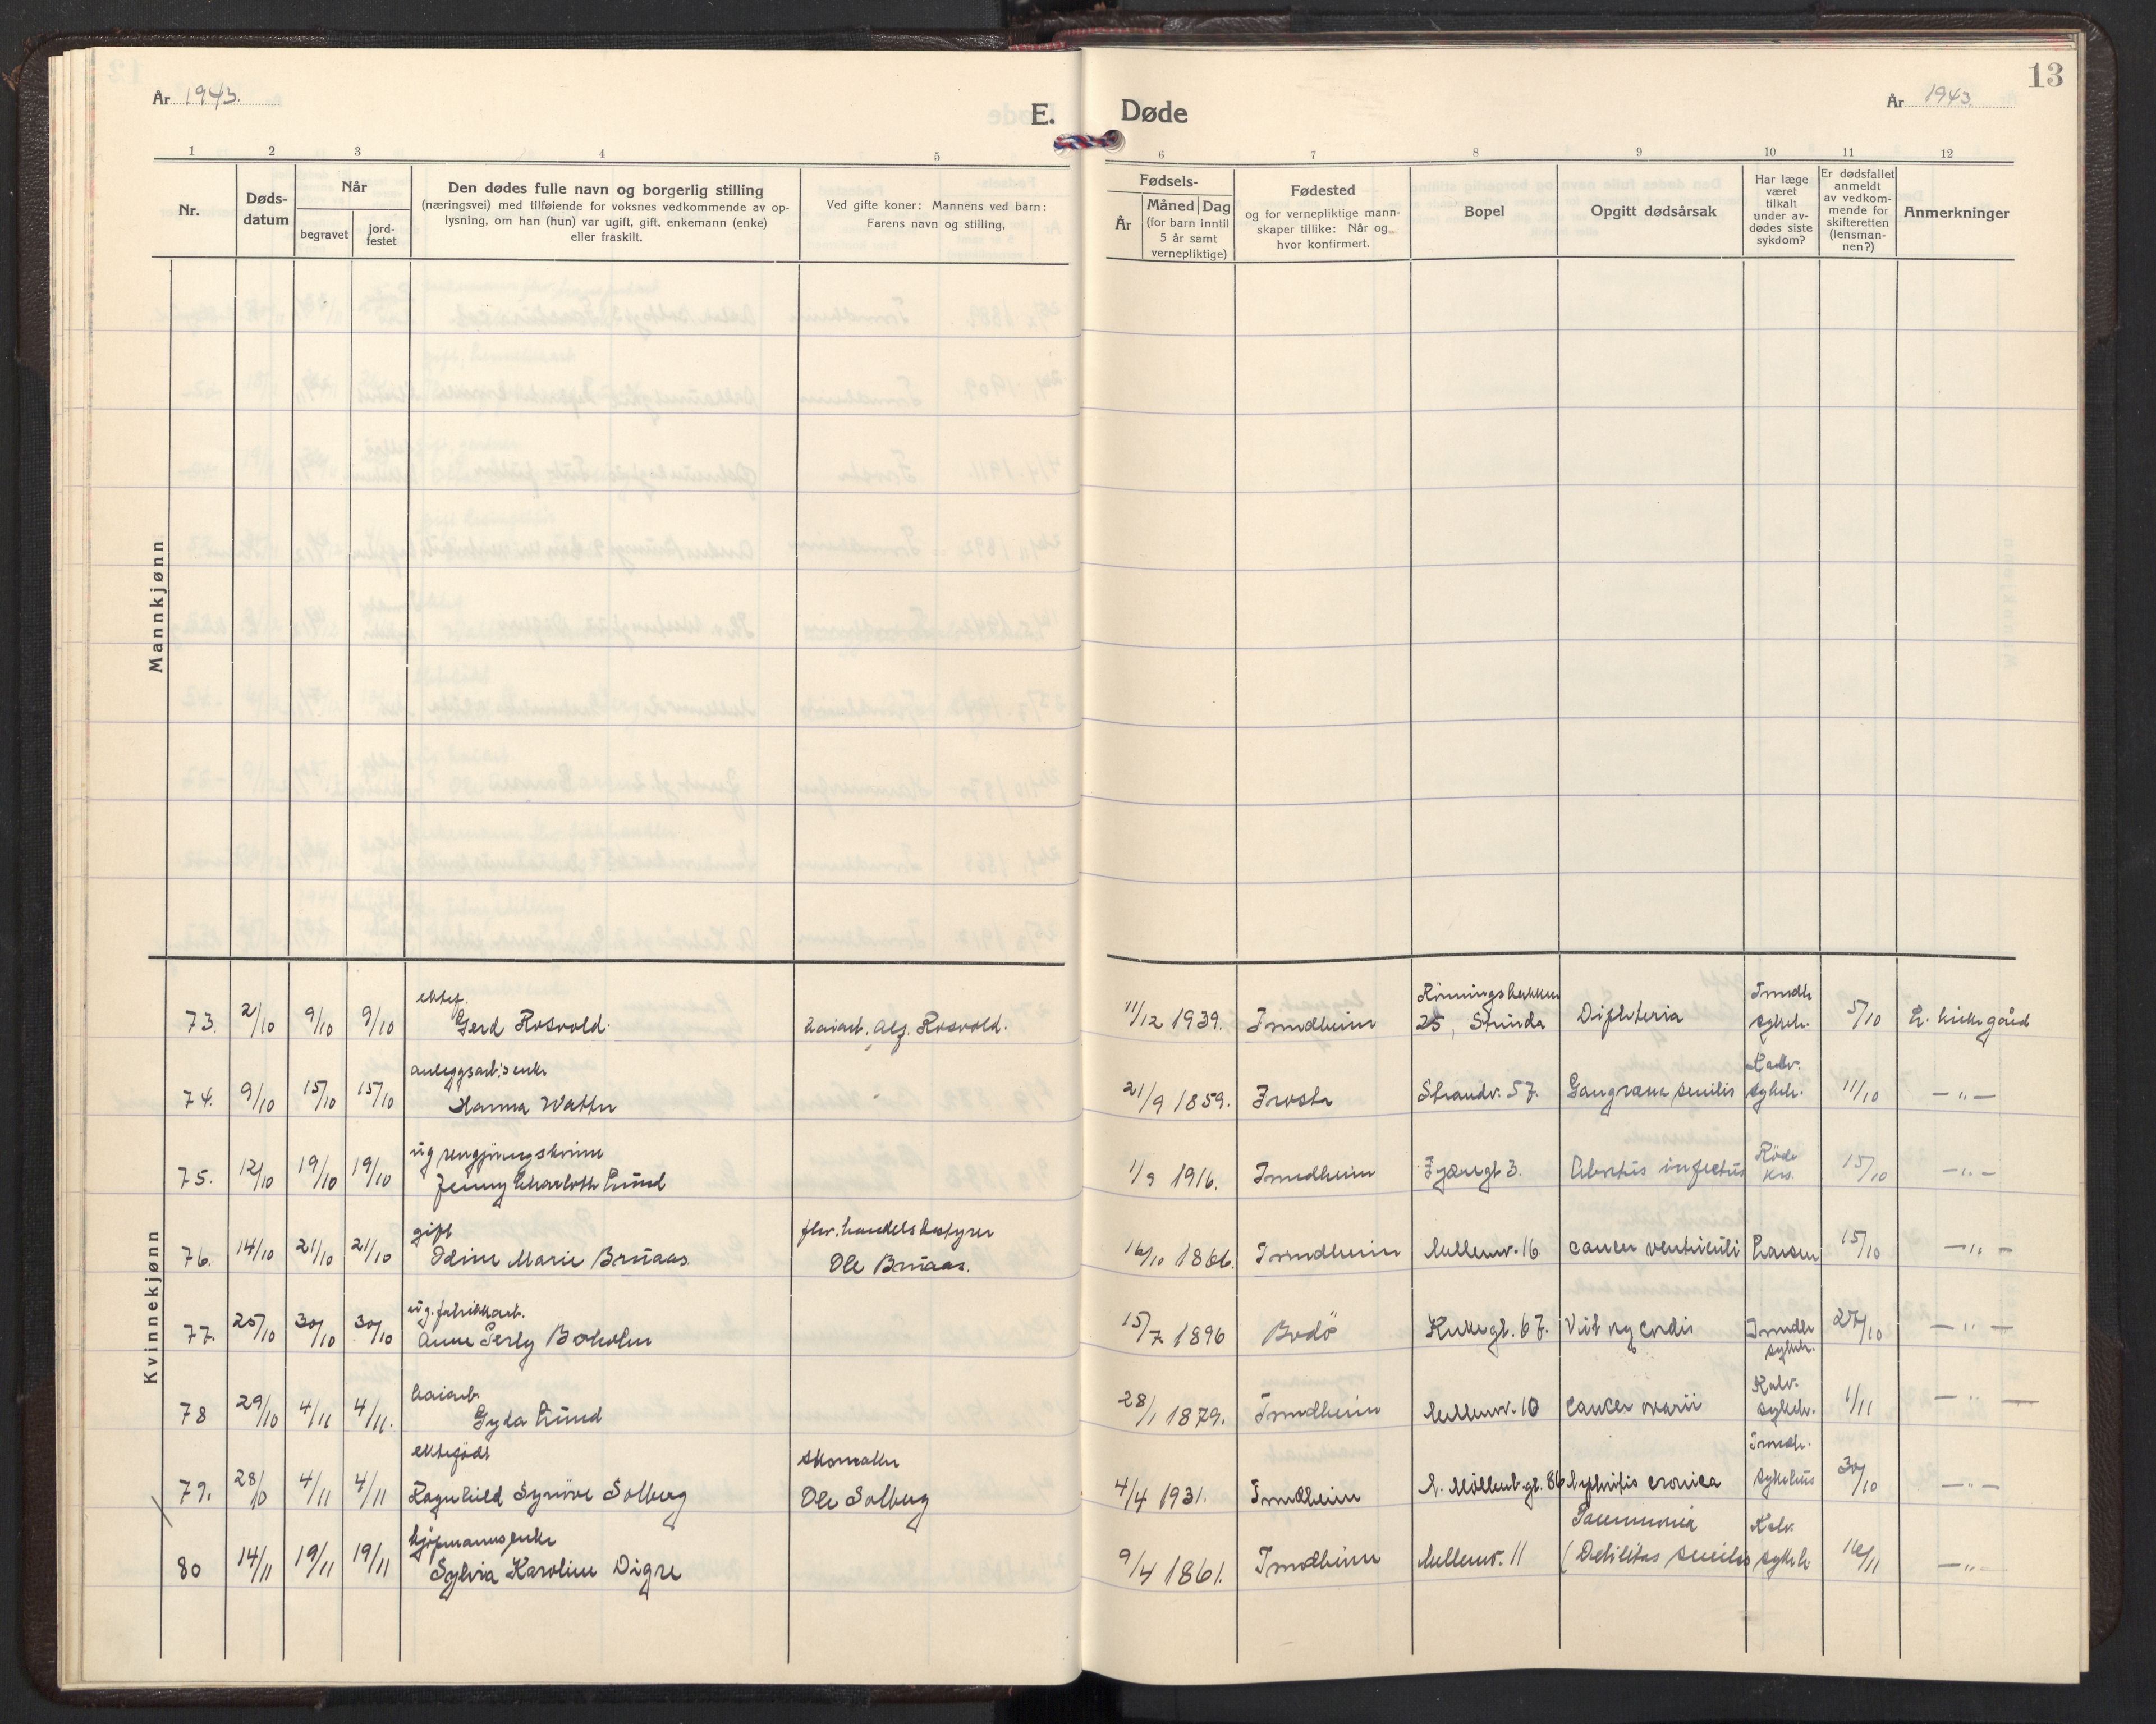 År 1943.
E.
Døde
År 1943.
13
1 2 3 4 5 6 7 8 9 10 11 12
Nr.
Døds-
datum
Når
begravet
jord-
festet
Den dødes fulle navn og borgerlig stilling
(næringsvei) med tilføiende for voksnes vedkommende av op-
lysning, om han (hun) var ugift, gift, enkemann (enke)
eller fraskilt.
Ved gifte koner: Mannens ved barn:
Farens navn og stilling,
Fødsels-
År
Måned Dag
(for barn inntil
5 år samt
vernepliktige)
Fødested
og for vernepliktige mann-
skaper tillike: Når og
hvor konfirmert.
Bopel
Opgitt dødsårsak
Har læge
været
tilkalt
under av-
dødes siste
sykdom?
Er dødsfallet
anmeldt
av vedkom-
mende for
skifteretten
(lensman-
nen?)
Anmerkninger
Mannkjønn
Kvinnekjønn
ektef. Rönningsbakken Trndh
73. 2/10 9/10 9/10 Gerd Rosvold. haiarb. Alf. Rosvold. 11/12 1939. Trondheim 25, Strinda Difteria sykeh. 5/10 L. kirkegård
anleggsarb's enke Kalv.
74. 9/10 15/10 15/10 Hanna Watten 21/9 1859. Frosta Strandv. 57. Gangræna senilis sykeh. 11/10 — " —
ug rengjøringskvinne Röde
75. 12/10 19/10 19/10 Jenny Charlotte Lund 1/9 1916. Trondheim Fjæregt 3. Abortus infectus Krs. 15/10 — " —
gift fhv. handelsbestyrer
76. 14/10 21/10 21/10 Odine Marie Bruaas Ole Bruaas. 16/10 1866. Trondheim Mellomv. 16 cancer ventriculi Larsen 15/10 — " —
ug. fabrikkarb.
77. 25/10 30/10 30/10 Anne Perly Boholm 15/7 1896 Bodö Kirkegt. 67. Vit org cordis Trondh 27/10 — " —
sykeh.
haiarb. Kalv.
78 29/10 4/11 4/11. Gyda Lund 28/1 1879. Trondheim Mellomv. 10 cancer ovarii sykeh. 1/11 — " —
ektefödt skomaker Trondh.
79. 28/10 4/11 4/11 Ragnhild Synöve Solberg Ole Solberg 4/4 1931. Trondheim N. Möllenb.gt. 86 Nephritis cronica sykehus 30/10 — " —
kjöpmannsenke Pneumonia Kalv.
80 14/11 19/11 19/11 Sylvia Karoline Digre 9/4 1861. Trondheim Mellomv. 11 (Debilitas senilis sykeh. 16/11 — " —